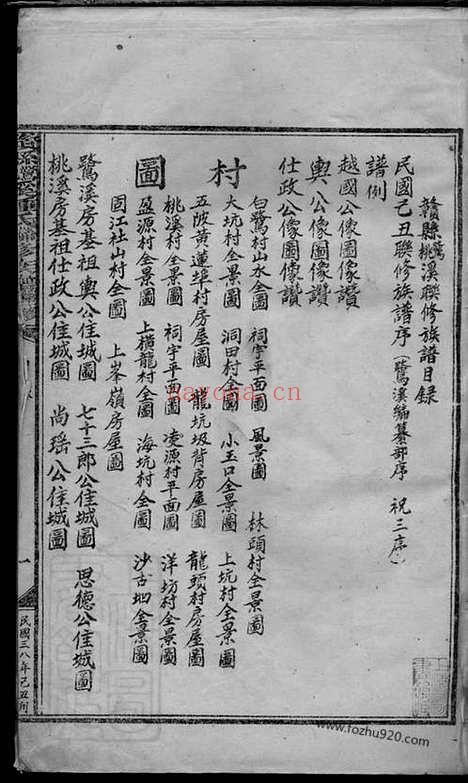 贛縣鷺桃溪聯修族譜目录
民國己丑聯修族譜序(鷺溪編纂部序 祝三序)
譜例
越國公像圖像讚
輿公像圖像讚
仕政公像圖像讚
村圖
白鷺村山水全圖 祠宇平面圖 風景圖 林頭村全景圖
大坑村全景圖 洞田村全圖 小玉口全景圖 上坑村全景圖
五陂黃蓮埠村房屋圖 龍坑圾背房屋圖 龍頭村房屋圖
桃溪村全景圖 祠宇平面圖 凌源村平面圖 洋坊村全景圖
盈源村全景圖 上橫龍村全圖 海坑村全圖 沙古坵全景圖
固江社山村全圖 上峯嶺房屋圖
鷺溪房基祖輿公佳城圖 七十三郎公佳城圖 思德公佳城圖
桃溪房基祖仕政公佳城圖 尚瑤公佳城圖
一
民國三八年己丑刊
nayona.cn
www.fozhu920.com